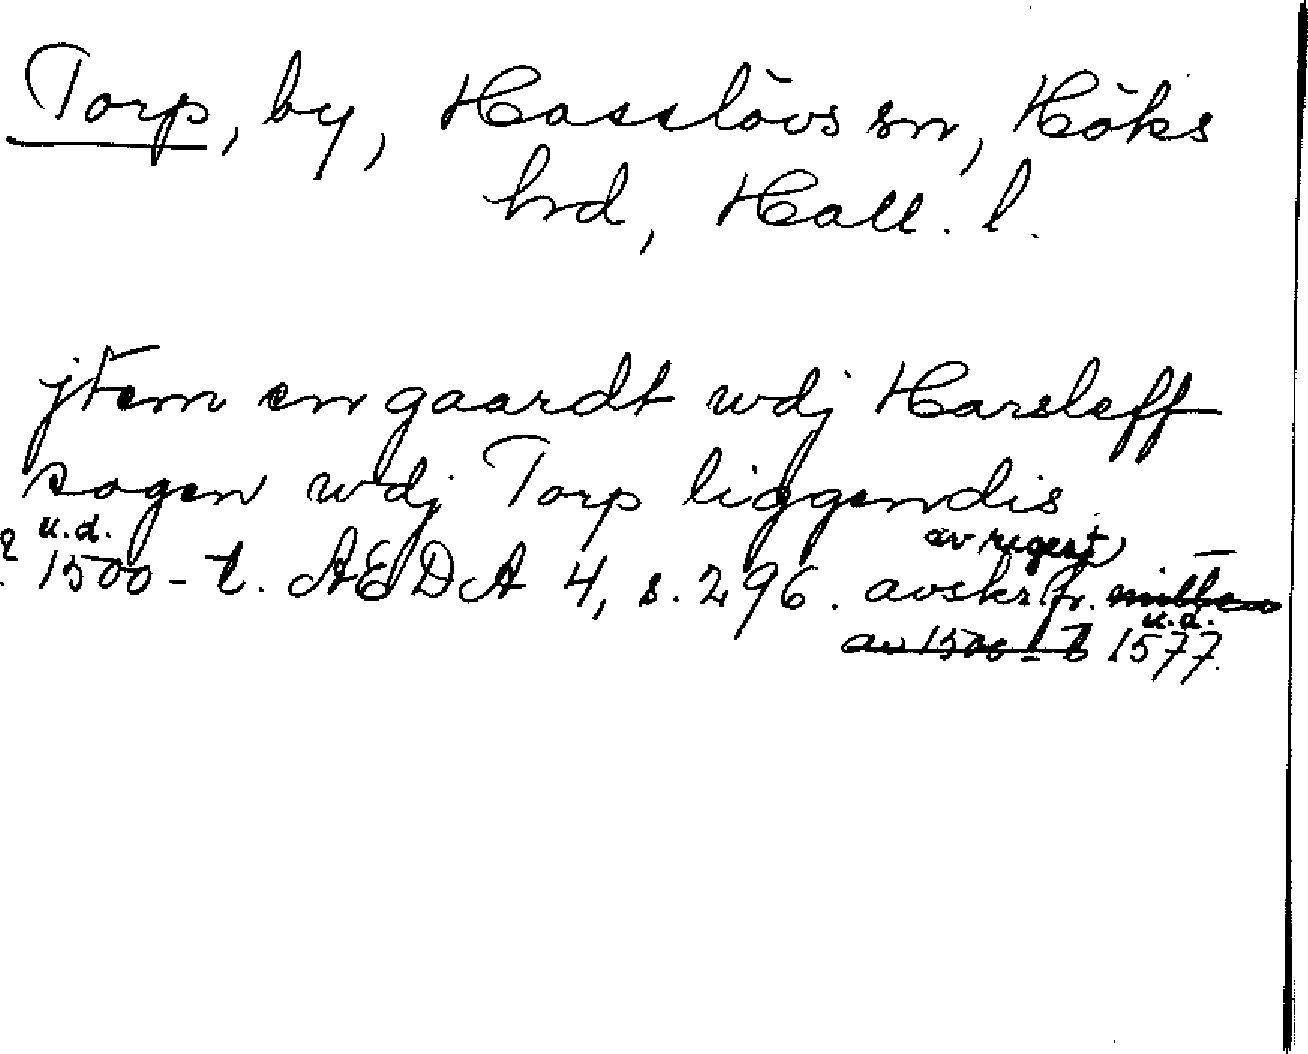 Torp, by, Hasslövs sn, Höks
hrd, Hall. l.
jtem en gaardt wdj Harsleff
sogen wdj Torp liggendis
u.d. av regest
? 1500-t. AEDA 4, s. 296. avskr. fr. mitten
u.a.
av 1500-t 1577.